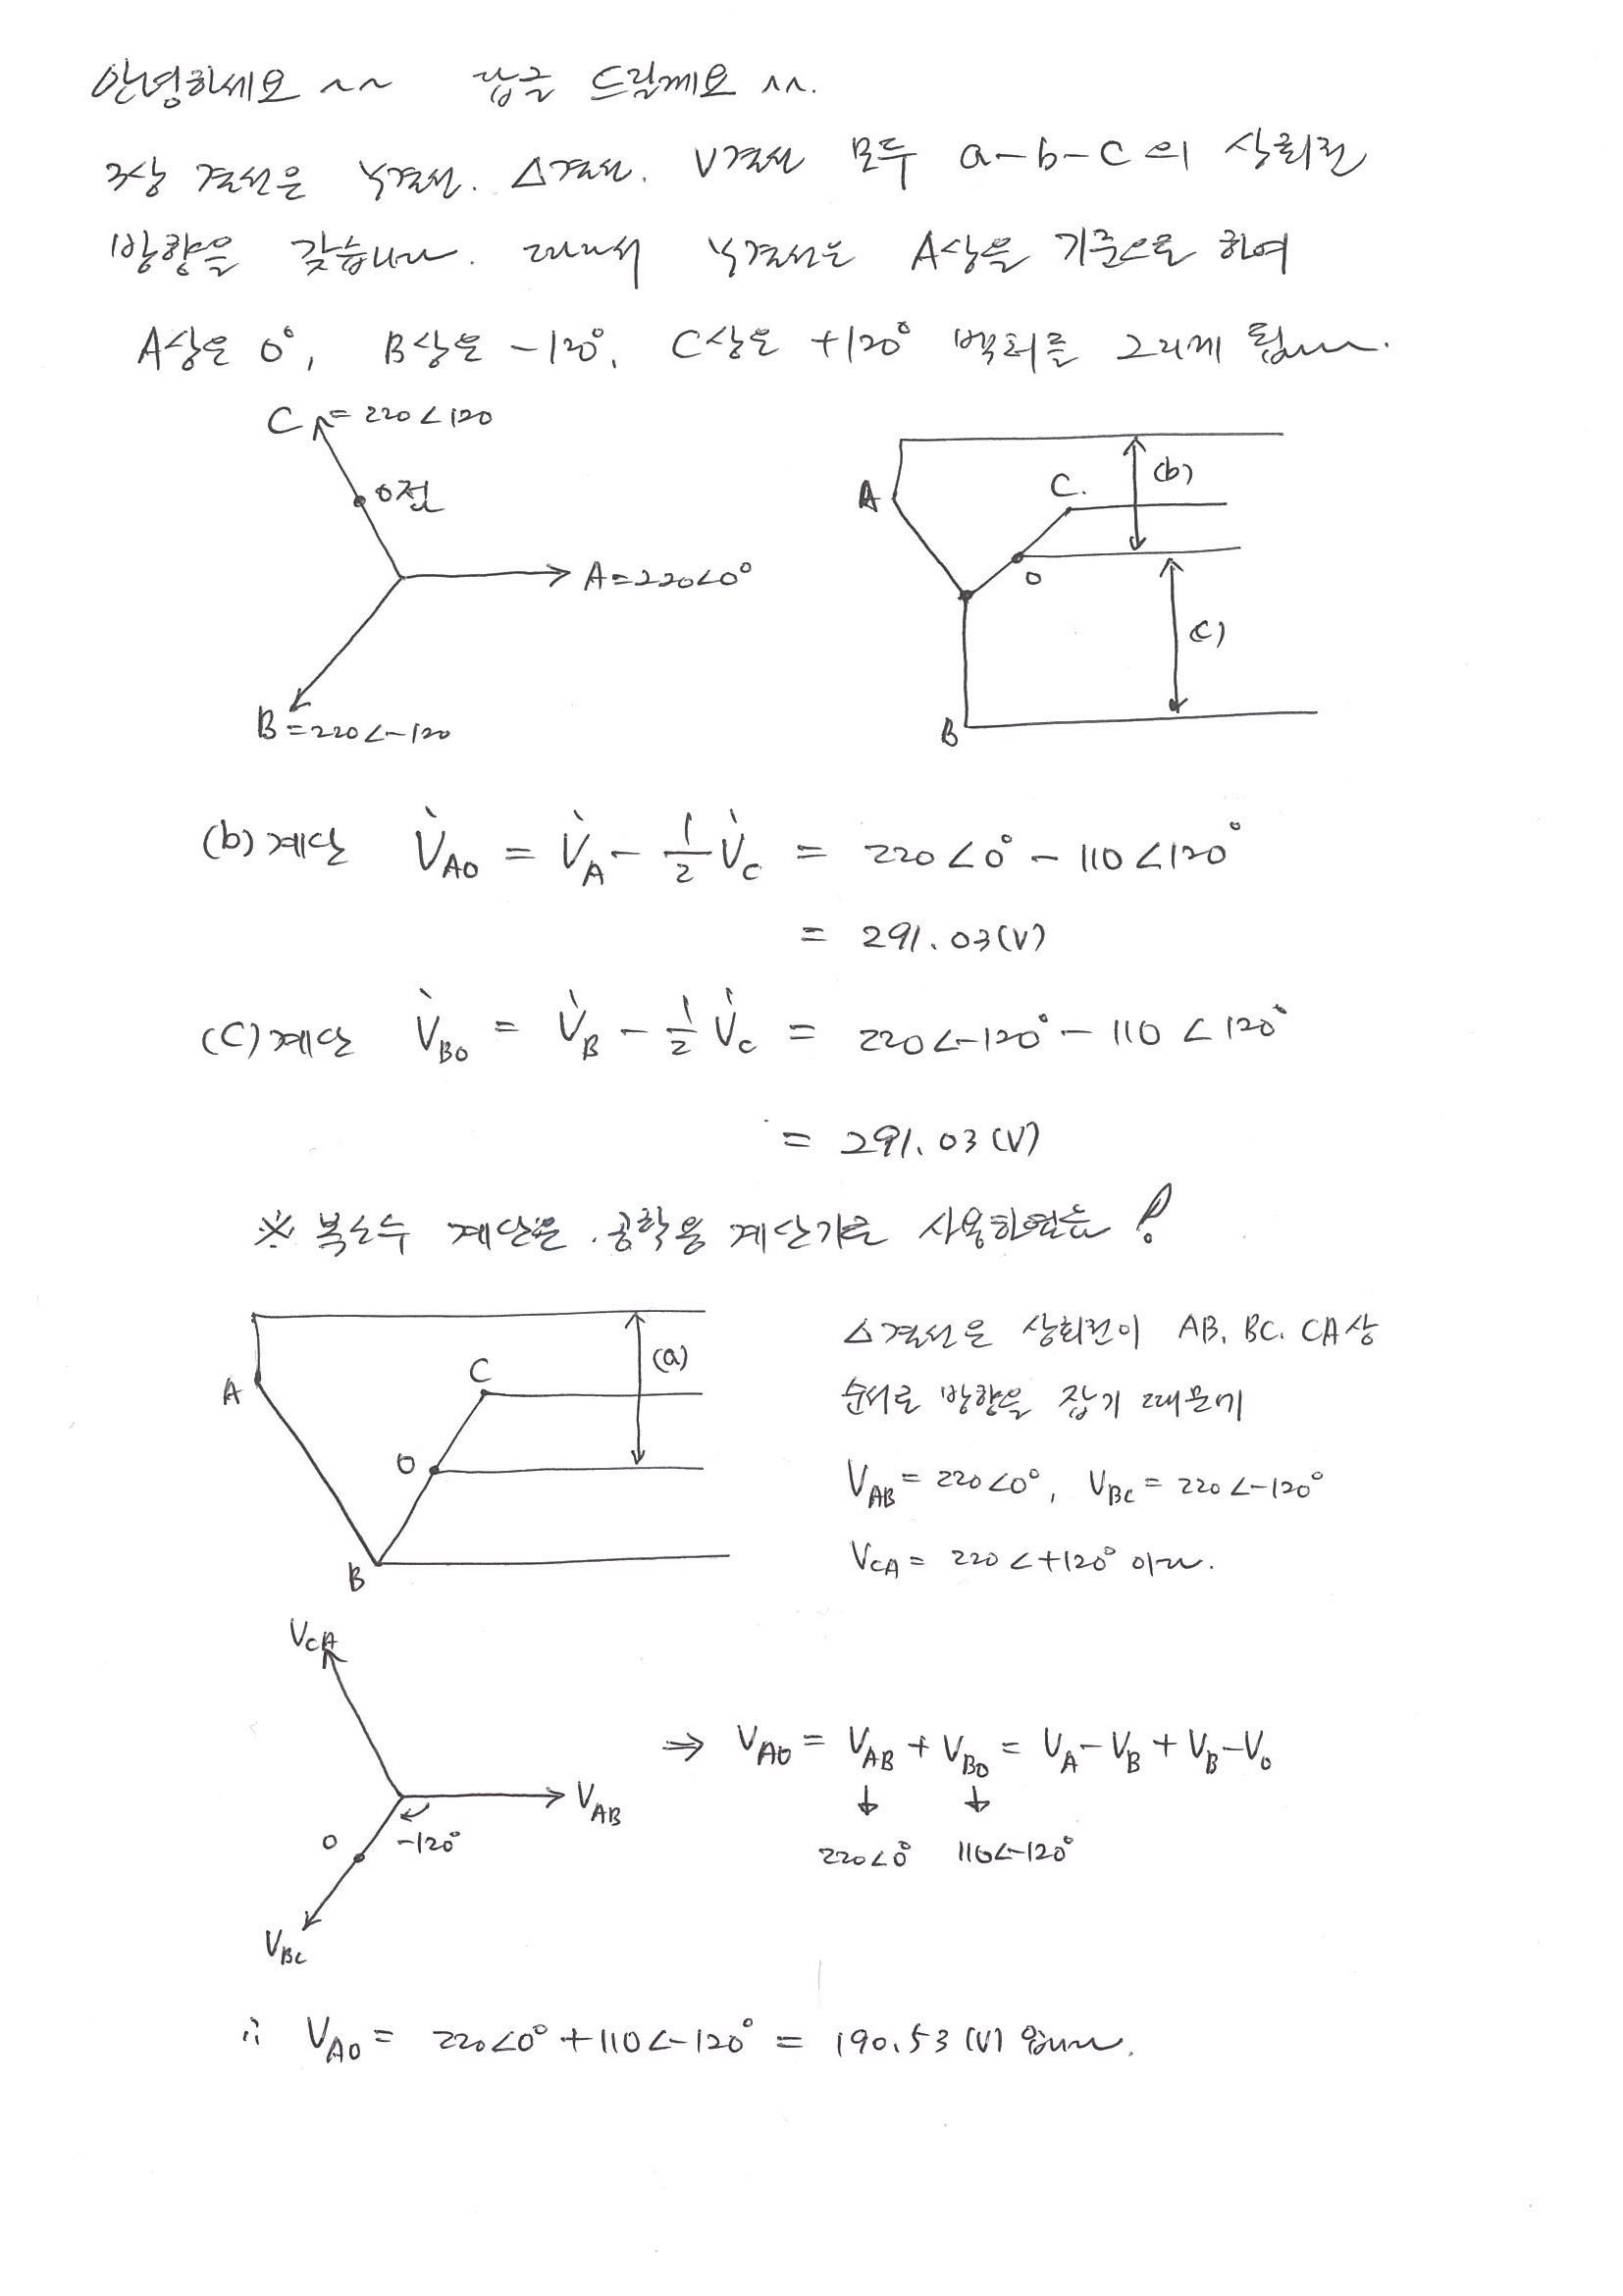 안녕하세요 ~~ 답글 드릴께요 ^^.
3상 결선은 Y결선. △결선. V결선 모두 a-b-c의 상회전
방향을 갖습니다. 따라서 Y결선은 A상을 기준으로 하여
A상은 0°, B상은 -120°, C상은 +120° 벡터를 그리게 됩니다.
C = 220∠120
0점
A=220∠0°
B=220∠-120
A
C.
(b)
0
(c)
B
(b)계산 V̇AO = V̇A - 1/2 V̇C = 220∠0° - 110∠120°
= 291.03(V)
(C)계산 V̇BO = V̇B - 1/2 V̇C = 220∠-120° - 110∠120°
= 291.03(V)
※ 복소수 계산은 공학용 계산기를 사용하였음!
A
C
(a)
0
B
△결선은 상회전이 AB, BC, CA상
순서로 방향을 잡기 때문에
VAB = 220∠0°, VBC = 220∠-120°
VCA = 220∠+120° 이다.
VCA
VAB
0
-120°
VBC
⇒ VAO = VAB + VBO = VA-VB + VB-VO
↓ ↓
220∠0° 110∠-120°
∴ VAO = 220∠0° + 110∠-120° = 190.53(V) 입니다.